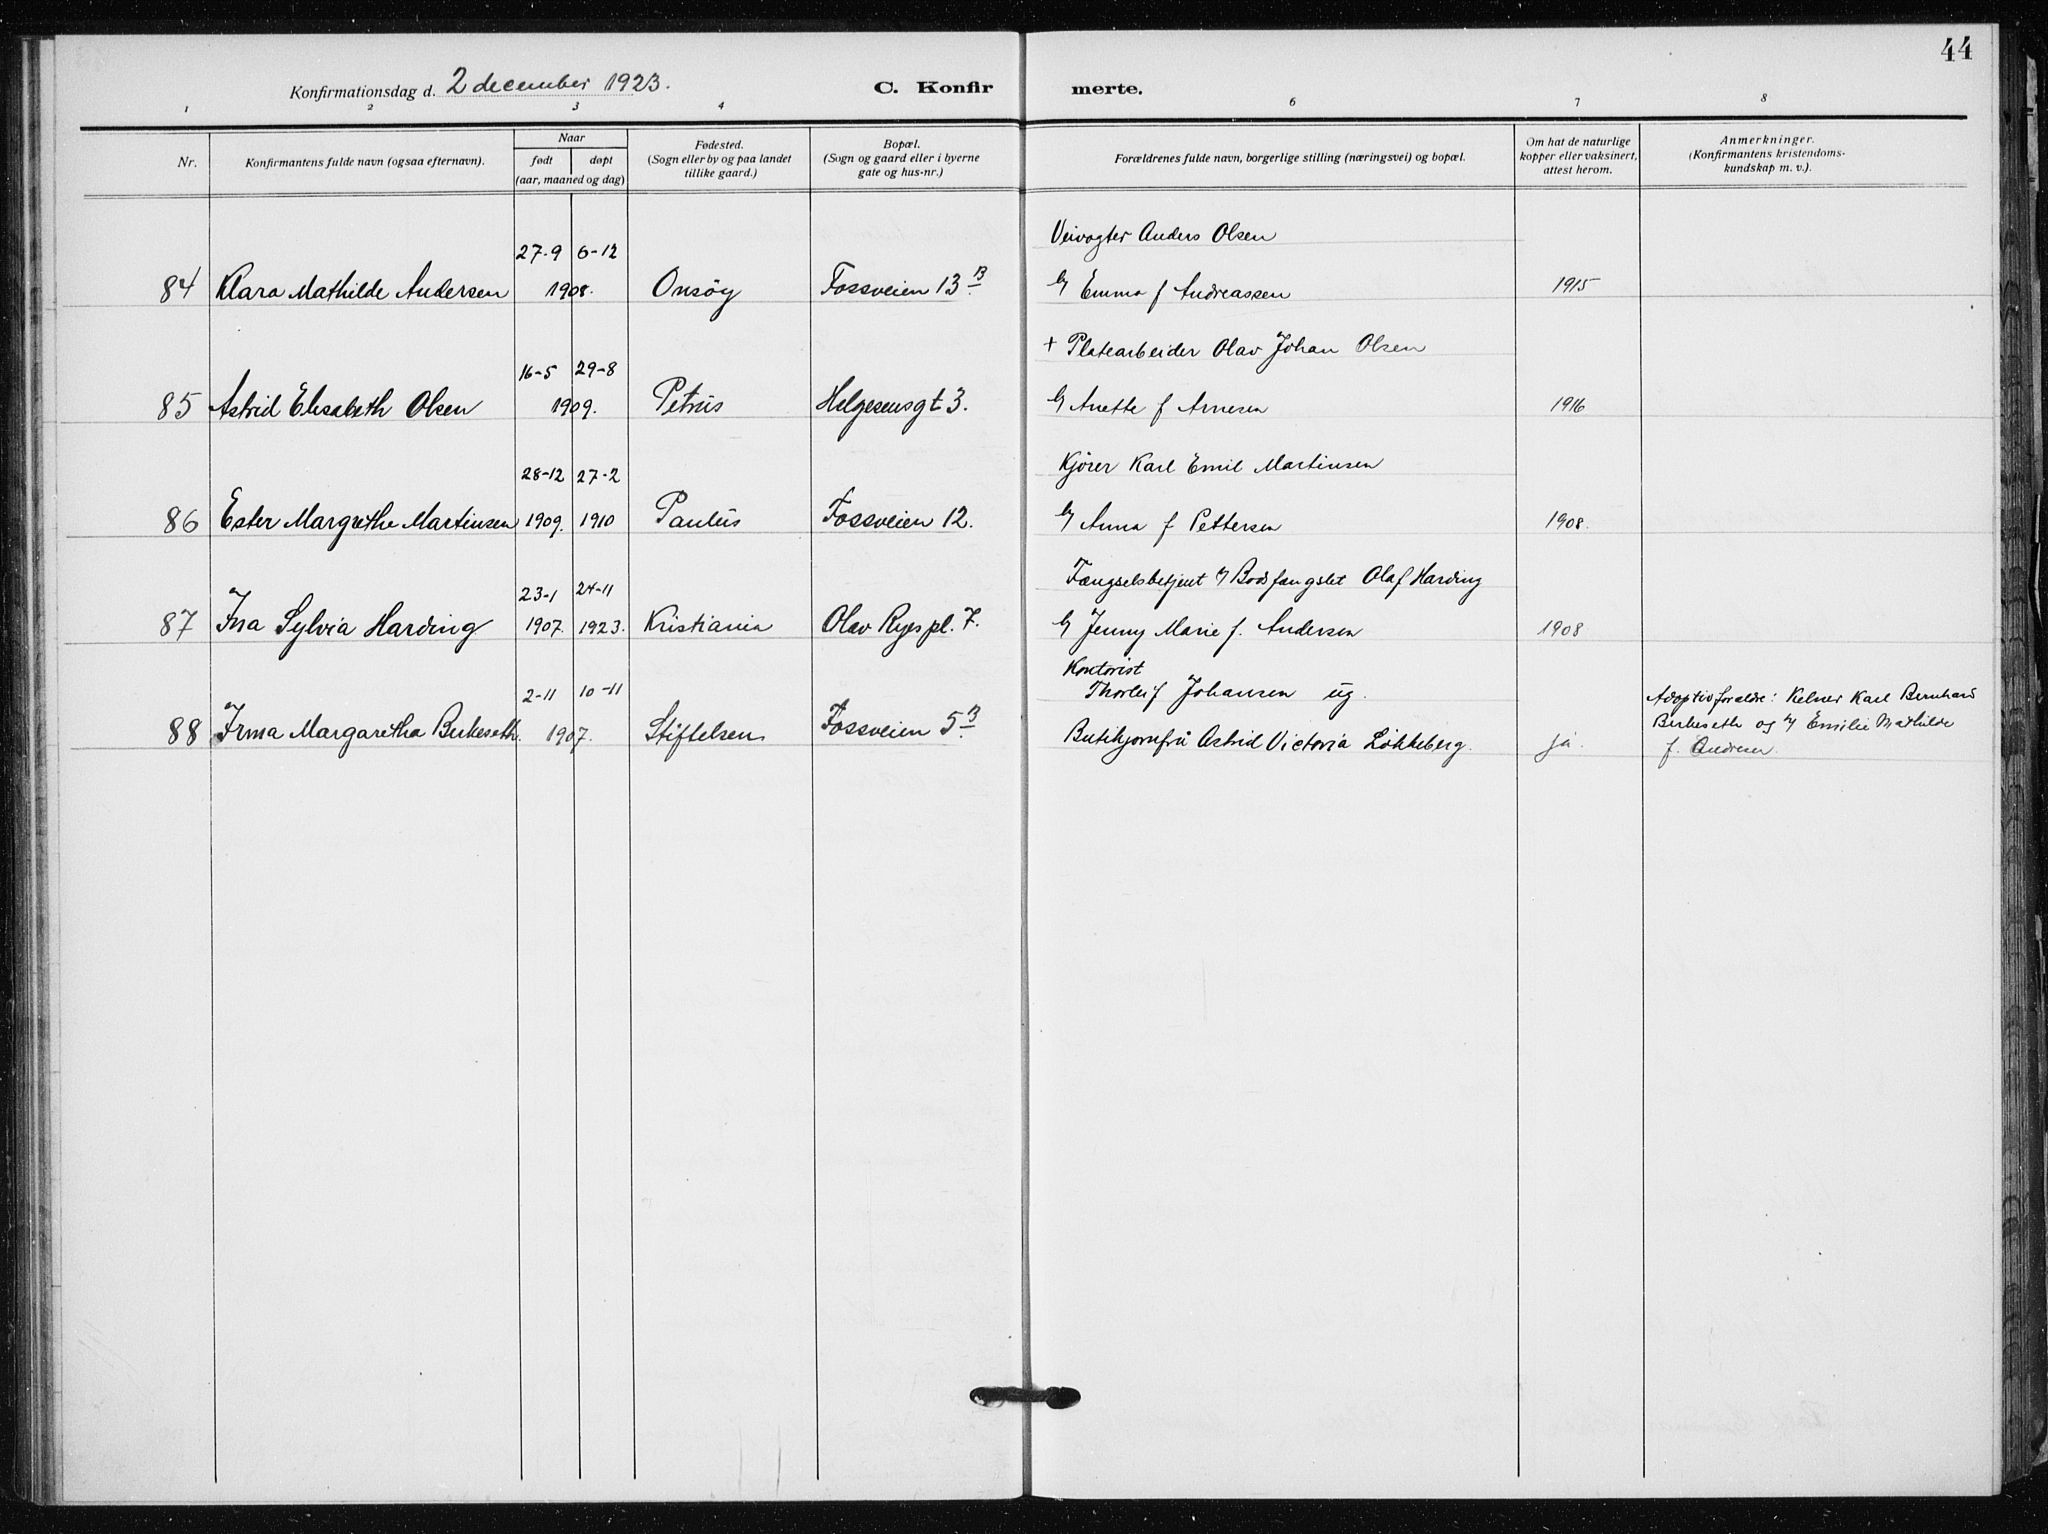 44
Konfirmationsdag d. 2 december 1923.
C. Konfir merte.
1 2 3 4 6 7 8
Nr.
Konfirmantens fulde navn (ogsaa efternavn).
Naar
født døpt
(aar, maaned og dag)
Fødested.
(Sogn eller by og paa landet
tillike gaard.)
Bopæl.
(Sogn og gaard eller i byerne
gate og hus-nr.)
Forældrenes fulde navn, borgerlige stilling (næringsvei) og bopæl.
Om hat de naturlige
kopper eller vaksinert,
attest herom.
Anmerkninger.
(Konfirmantens kristendoms-
kundskap m. v.).
27-9 6-12 Veivogter Anders Olsen
84 Klara Mathilde Andersen 1908. Onsöy Fossveien 13 B. Emma f Andreassen 1915
16-5 29-8 + Platearbeider Olav Johan Olsen
85 Astrid Elisabeth Olsen 1909. Petrus Helgesensgt 3. Anette f Arnesen 1916
28-12 27-2 Kjörer Karl Emil Martinsen
86 Ester Margrethe Martinsen 1909. 1910 Paulus Fossveien 12. Anna f Pettersen 1908.
23-1 24-11 Fængselsbetjent v/ Bodsfængslet Olaf Harding
87 Ina Sylvia Harding 1907. 1923. Kristiania Olav Ryes pl. 7. Jenny Marie f. Andersen 1908
Kontorist
2-11 10-11 Thorleif Johansen ug. Adoptivforældre: Kelner Karl Bernhard
88 Irma Margaretha Birkeseth 1907. Stiftelsen Fossveien 5 B. Butikjomfru Astrid Victoria Lökkeberg. ja. Birkeseth og Emilie Mathilde
f. Andresen.